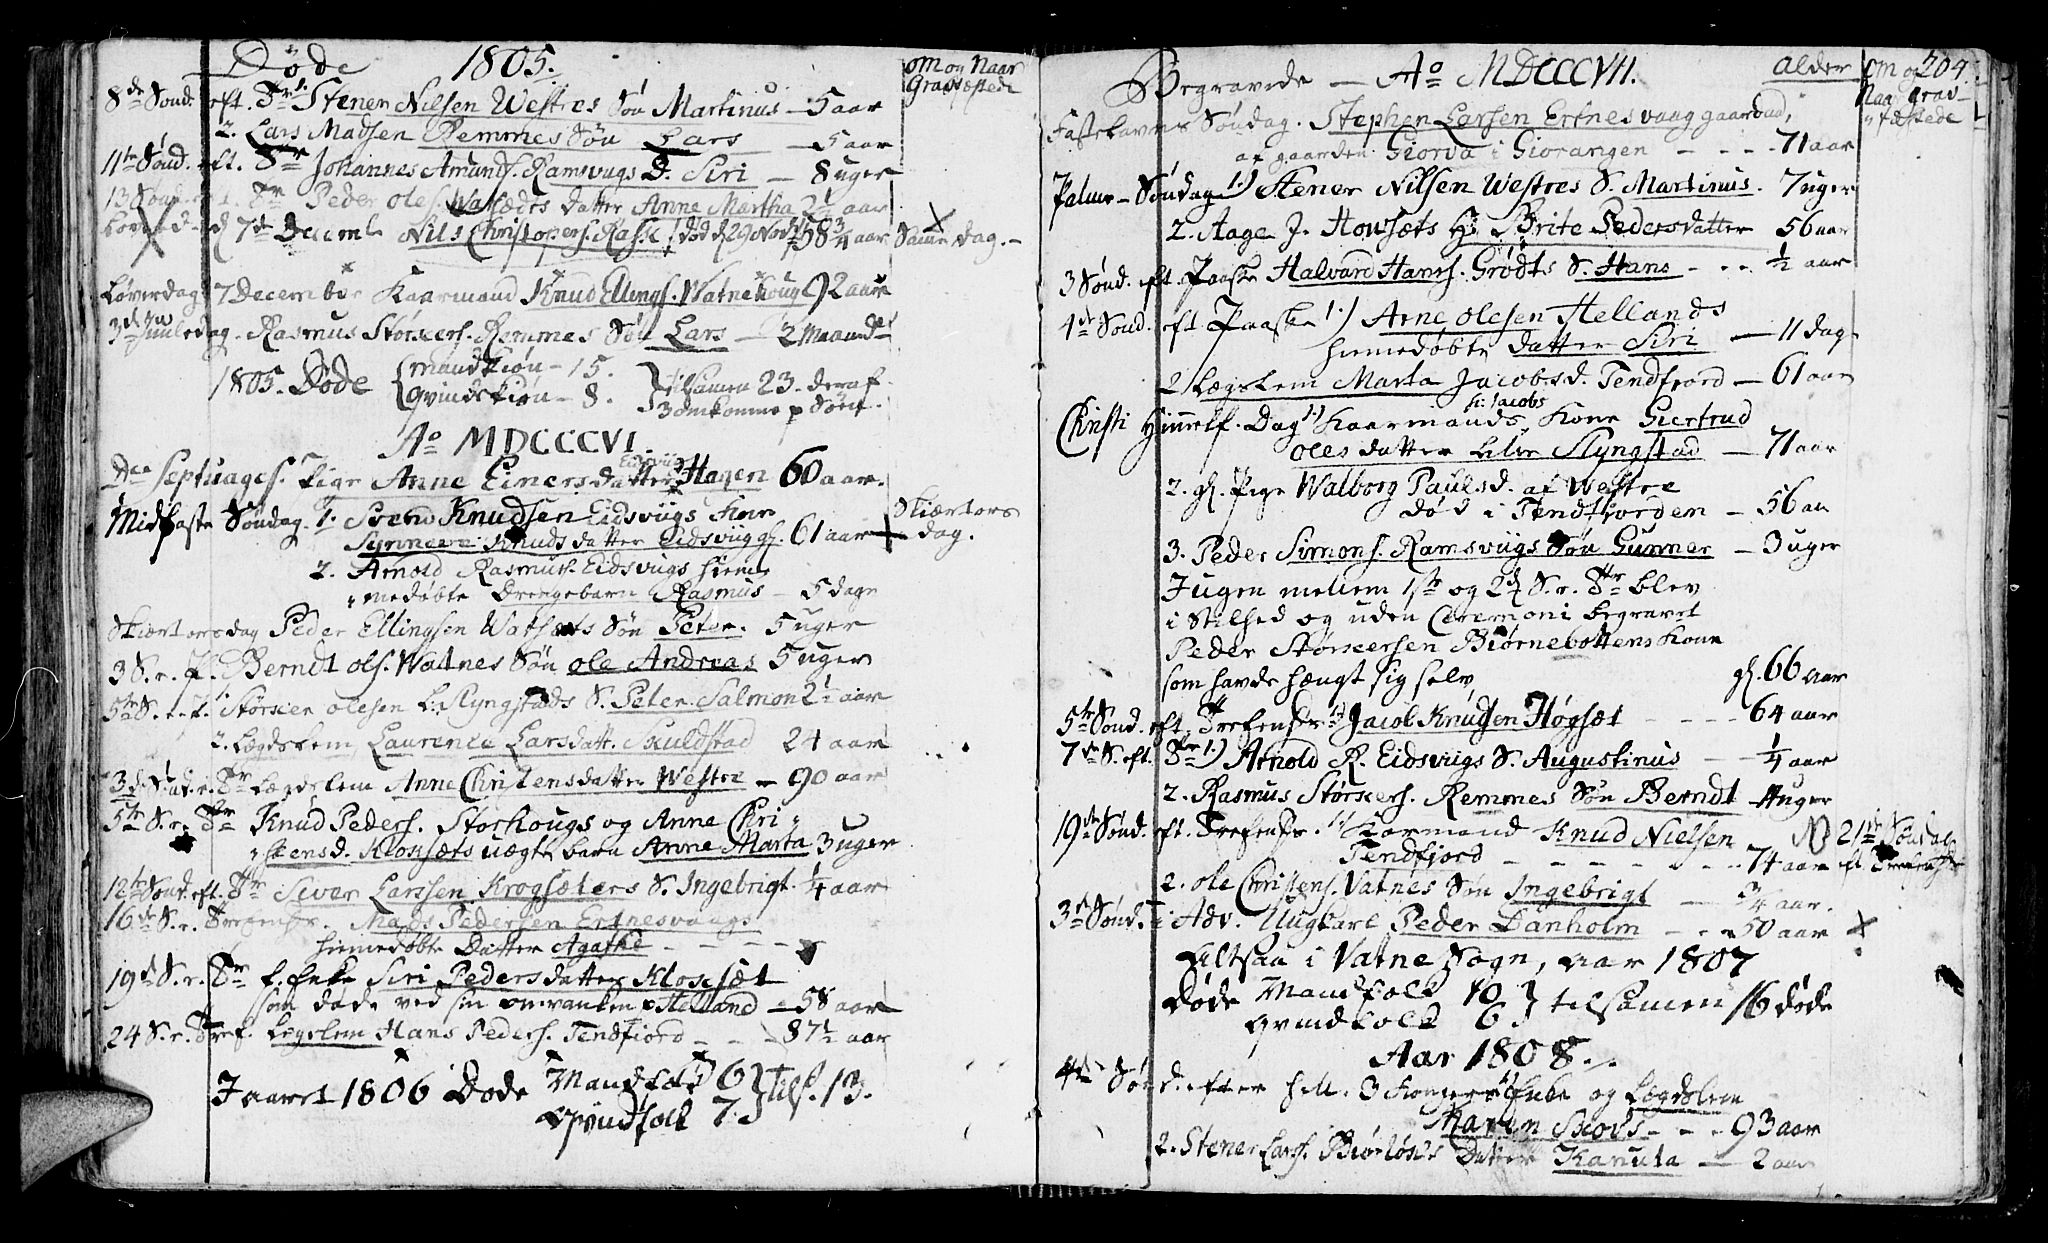 Døde 1805. om og Naar
Græsfæstede
8de Sønd. eft. Tr. 1. Stener Nilsen Westres Søn Martinus — 5 aar
2. Lars Madsen Remmes Søn Lars — 5 aar
11te Sønd. eft. Tr Johannes Amunds. Ramsvigs D. Siri — 8 uger
13 Sønd. eft. Tr Peder Oles. Watsædes datter Anne Martha 2½ aar
d 7de Decemb Nils Christophers. Raske død d 29 Novb 58¾ aar Samme dag.
Løverdag 7 December Kaarmand Knud Ellings. Watnehoug 92 aar
3die Juuledag. Rasmus Størkers. Remmes Søn Lars — 2 Maand
1805. Døde mandkiøn — 15.
qvindekiøn — 8. tilsamen 23. deraf
3 omkomne p Søen.
Ao MDCCCVI.
Dca Septuages. Pige Anne Einersdatter Hagen 60 aar.
Midfaste Søndag. 1. Svend Knudsen Eidsviigs Kone
Synneve Knudsdatter Eidsviig gl. 61 aar Skiertors
dag.
2. Arnold Rasmus. Eidsvigs hiem
medøbte Drengebarn Rasmus — 5 dage
Skiertorsdag Peder Ellingsen Watsæts Søn Peter. 5 uger
3 S. e. P. Berndt Ols. Watnes Søn Ole Andreas 5 uger
5te S. e. P. 1. Størker Olesen L. Slyngstads S. Peter Salmon 2½ aar
2. Lægdslem, Laurence Larsdatt. Skuldstad 24 aar
3die Sønd. e. Tr Lægdslem Anne Christensdatter Westre — 90 aar
5te S. e. Tr Knud Peders. Storhougs og Anne Chri
stensd. Kloksæts uægte barn Anne Marta 3 uger
12te Sønd. eft. Tr Siver Larssen Krogsæters S. Ingebrigt ¼ aar
16de S. e. Mads Pedersen Ertnesvaags
hiemedøbte Datter Agathe
19de S. e. Tr Enke Siri Pedersdatter Kloksæt
som døde ved sin p Helland — 58 aar
24 S. e. Tref. Legslem Hans Peders. Tendfiord — 87½ aar
I aaret 1806 Døde Mandfolk 6
Qvindfolk 7. tils. 13.
Begravede — Ao MDCCCVII. Alder om og 204
Naar grav-
fæstede
Fastelavns Søndag. Stephen Larsen Ertnesvaag
af gaarden Giorva i Giorangen — 71 aar
Palme-Søndag 1.) Stener Nilsen Westres S. Martinus. 7 uger
2. Aage J. Hovsæts H. Brite Pedersdatter 56 aar
3 Sønd. eft. Paaske Halvard Hans. Grødts S. Hans — ½ aar
4de Sønd. eft Paaske 1.) Arne Olesen Hellands
hiemedøbte datter Siri — 11 dage
2 Lægslem Marta Jacobsd. Tendfiord — 61 aar
Christi Himmelf. Dag 1.) Kaarmands Jacobs Kone Giertrud
Olesdatter Lille Slyngstad — 71 aar
2. gl. Pige Walborg Paulsd. af Westre
død i Tendfiorden — 56 aar
3. Peder Simons. Ramsviigs Søn Gunner — 3 uger
I ugen mellem 1ste og 2d S. e. Tr blev
i Stilhed og uden Ceremoni begravet
Peder Størkersen Biørnebottens Kone
som havde hængt sig selv gl. 66 aar
5te Sønd. eft. Trefensh. Jacob Knudsen Høgsæt — 64 aar
7de S. eft. Tr 1.) Arnold R. Eidsviigs S. Augustinus — ¼ aar
2. Rasmus Størkers. Remmes Søn Berndt — 4 uger
19de Sønd. eft. Trefensh. 1. Kormand Knud Nielsen 21de Søndag
Tendfjord — 74 aar
2. Ole Christens. Vatnes Søn Ingebrigt — ¾ aar.
3de Sønd. i Adv. Ungkarl Peder Danholm — 50 aar
Altsaa i Vatne Sogn, aar 1807
Døde Mandfolk 10
Qvindfolk 6 tilsamen 16 døde
Aar 1808.
4de Sønd. efter hell. 3 Konger 1. Enke og Legdslem
Karen Skovs — 93 aar
2. Stener Lars. Biørløs Datter Kanuta — 2 aar